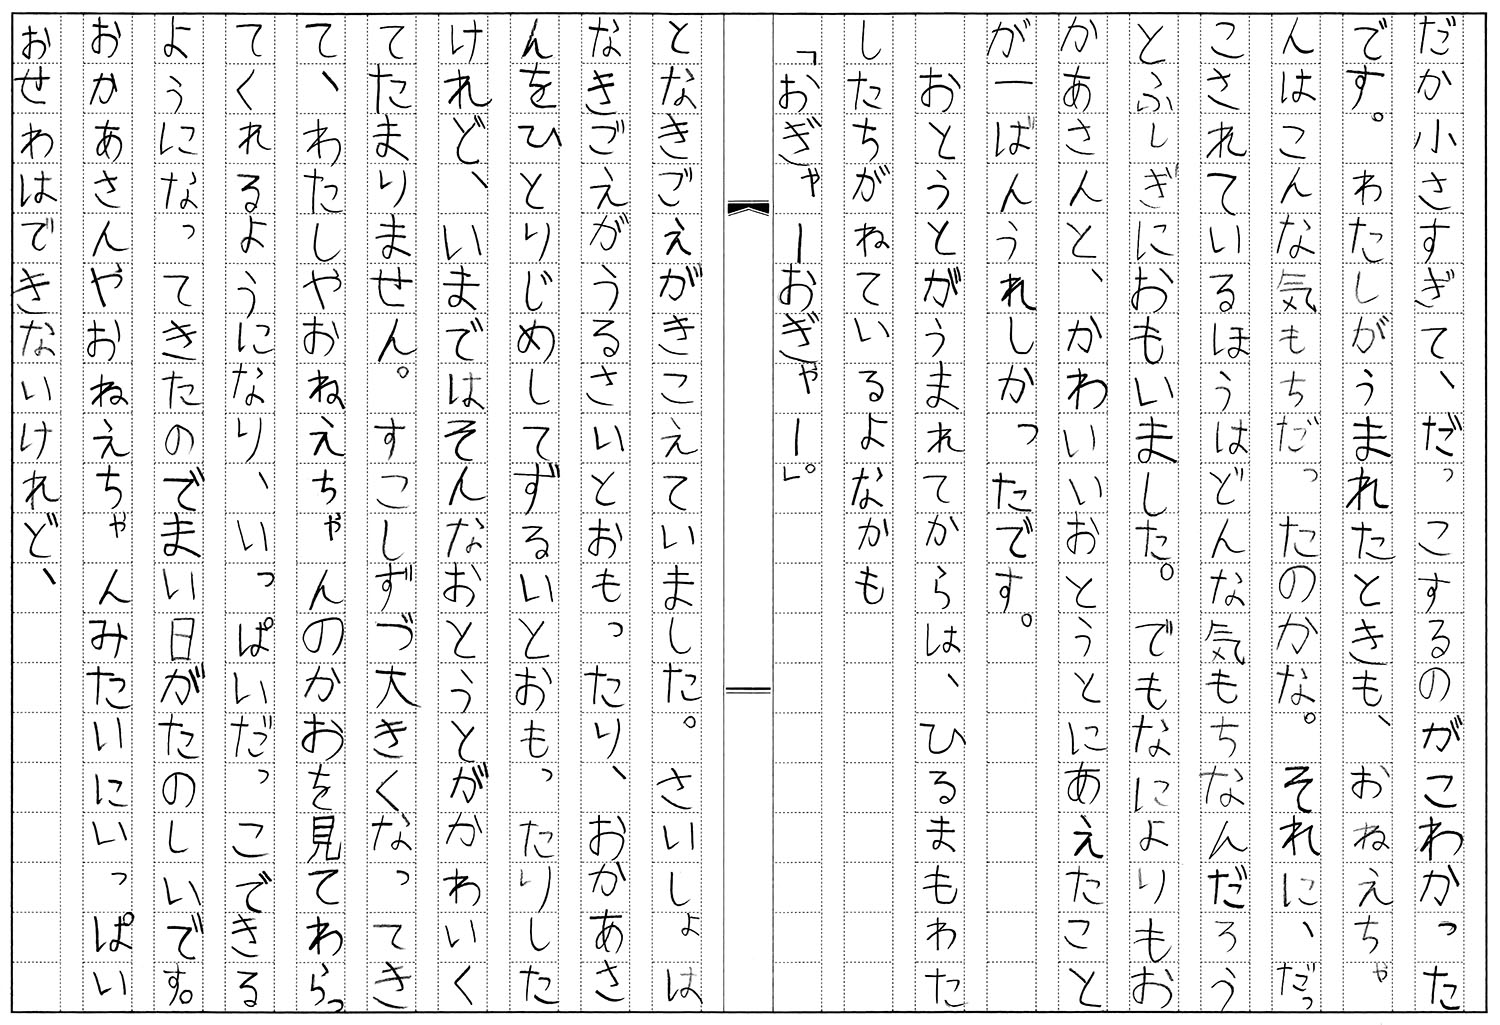 だか小さすぎて、だっこするのがこわかった
です。わたしがうまれたときも、おねえちゃ
んはこんな気もちだったのかな。それに、だっ
こされているほうはどんな気もちなんだろう
とふしぎにおもいました。でもなによりもお
かあさんと、かわいいおとうとにあえたこと
が一ばんうれしかったです。
おとうとがうまれてからは、ひるまもわた
したちがねているよなかも
「おぎゃーおぎゃー」。
となきごえがきこえていました。さいしょは
なきごえがうるさいとおもったり、おかあさ
んをひとりじめしてずるいとおもったりした
けれど、いまではそんなおとうとがかわいく
てたまりません。すこしずづ大きくなってき
て、わたしやおねえちゃんのかおを見てわらっ
てくれるようになり、いっぱいだっこできる
ようになってきたのでまい日がたのしいです。
おかあさんやおねえちゃんみたいにいっぱい
おせわはできないけれど、